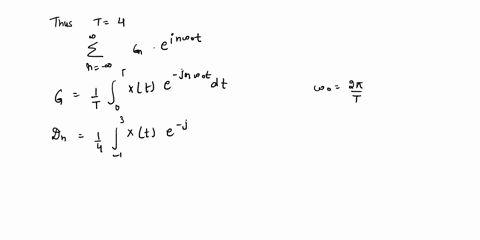 Thus T = 4
∞ ∑ n=-∞ Cn · e^{jnω₀t}
G = 1/T ∫₀^T x(t) e^{-jnω₀t} dt
ω₀ = 2π/T
Dn = 1/4 ∫₋₁^3 x(t) e^{-j}